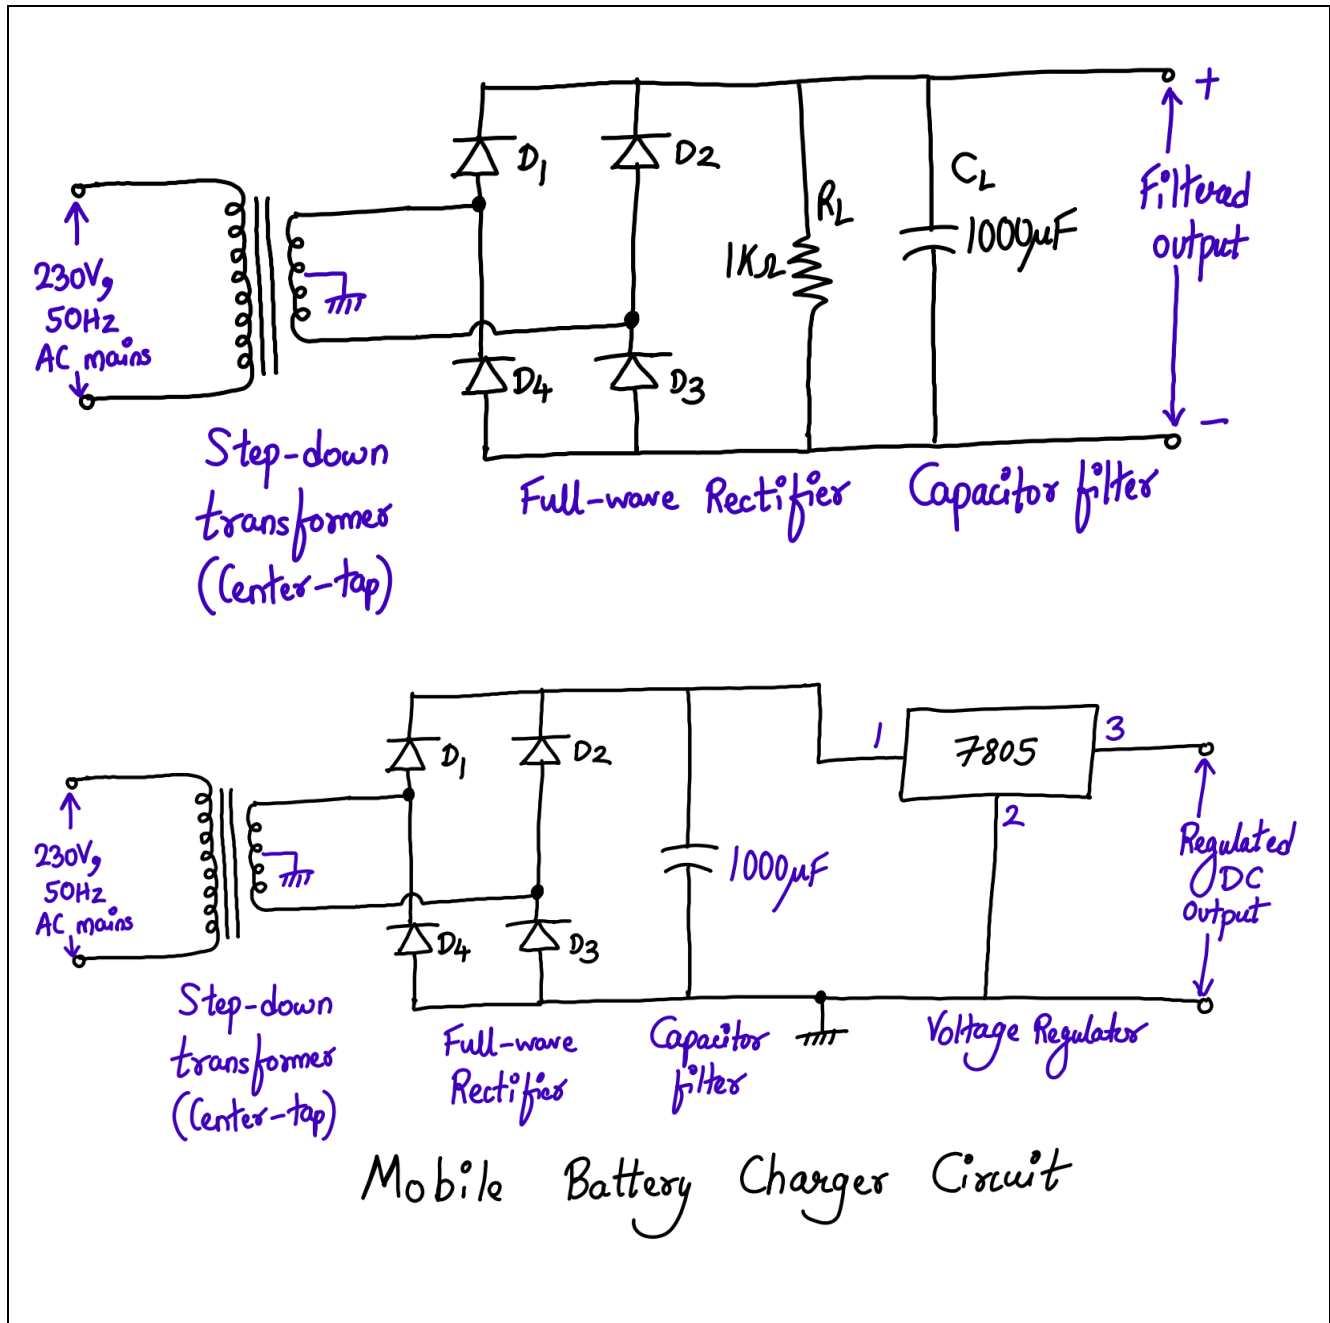 D1
D2
+
230V,
50Hz
AC mains
RL
1KΩ
CL
1000μF
Filtered
output
D4
D3
-
Step-down
transformer
(Center-tap)
Full-wave Rectifier
Capacitor filter
D1
D2
1
7805
3
2
230V,
50Hz
AC mains
1000μF
Regulated
DC
Output
D4
D3
Step-down
transformer
(Center-tap)
Full-wave
Rectifier
Capacitor
filter
Voltage Regulator
Mobile Battery Charger Circuit